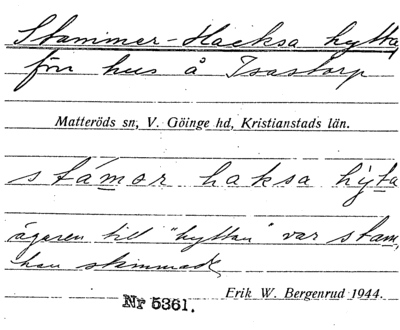 Stammer-Haeksa hytta
förr hus å Isastorp
Matteröds sn, V. Göinge hd, Kristianstads län.
stámor haksa hýta
ägaren till "hyttan" var stam,
han skimmade
Erik W. Bergenrud 1944.
Nr 5361.